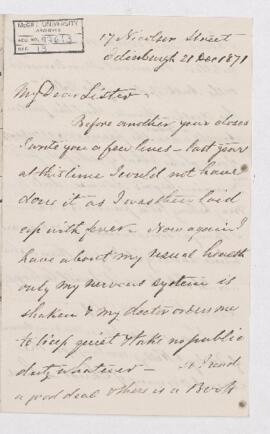 McGILL UNIVERSITY
ARCHIVES
ACC. NO.
REF.
17 Nicolson Street
Edinburgh 21 Dec 1871
My Dear Sister
Before another year closes
I write you a few lines - Last year
at this time I could not have
done it as I was then laid
up with fever - Now again I
have about my usual health
only my nervous system is
shaken & my doctor orders me
to keep quiet & take no public
duty whatever - I read
a good deal & there is a Book